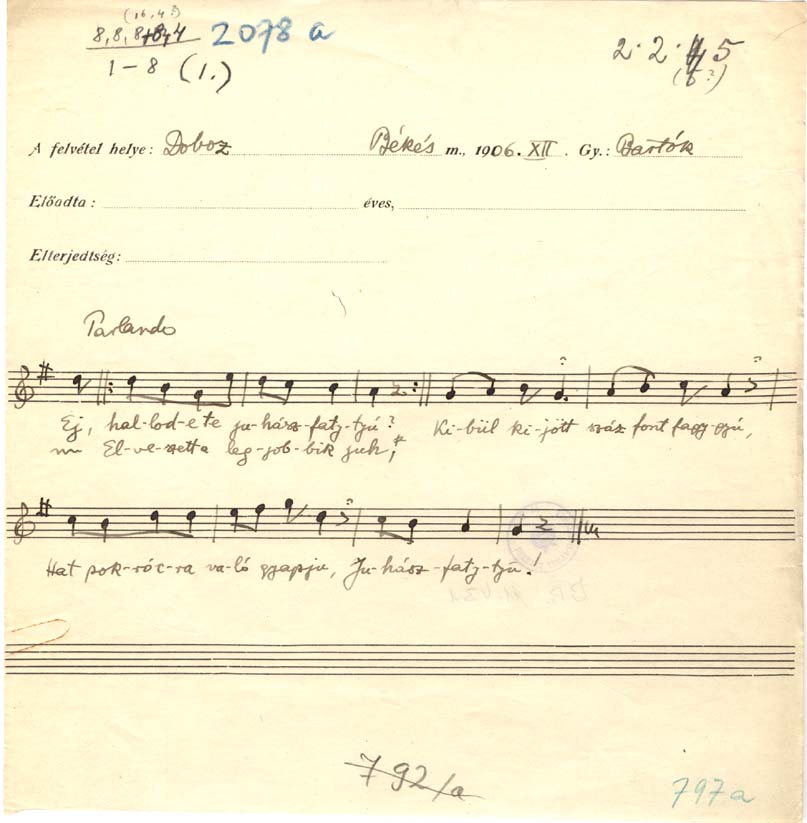 (16,4?)
8, 8, 8+8+4 2078 a 2. 2. 5
1-8 (1.) (6?)
A felvétel helye: Doboz Békés m., 1906. XII. Gy.: Bartók
Előadta: éves,
Elterjedtség:
Parlando
Ej, hal-lod-e te ju-hász-faty-tyú? Ki-bül ki-jött száz font fagy-gyú,
El-ve-szett a leg-job-bik juh,
Hat pok-róc-ra va-ló gyapju, Ju-hász-faty-tyú!
792/a 797a